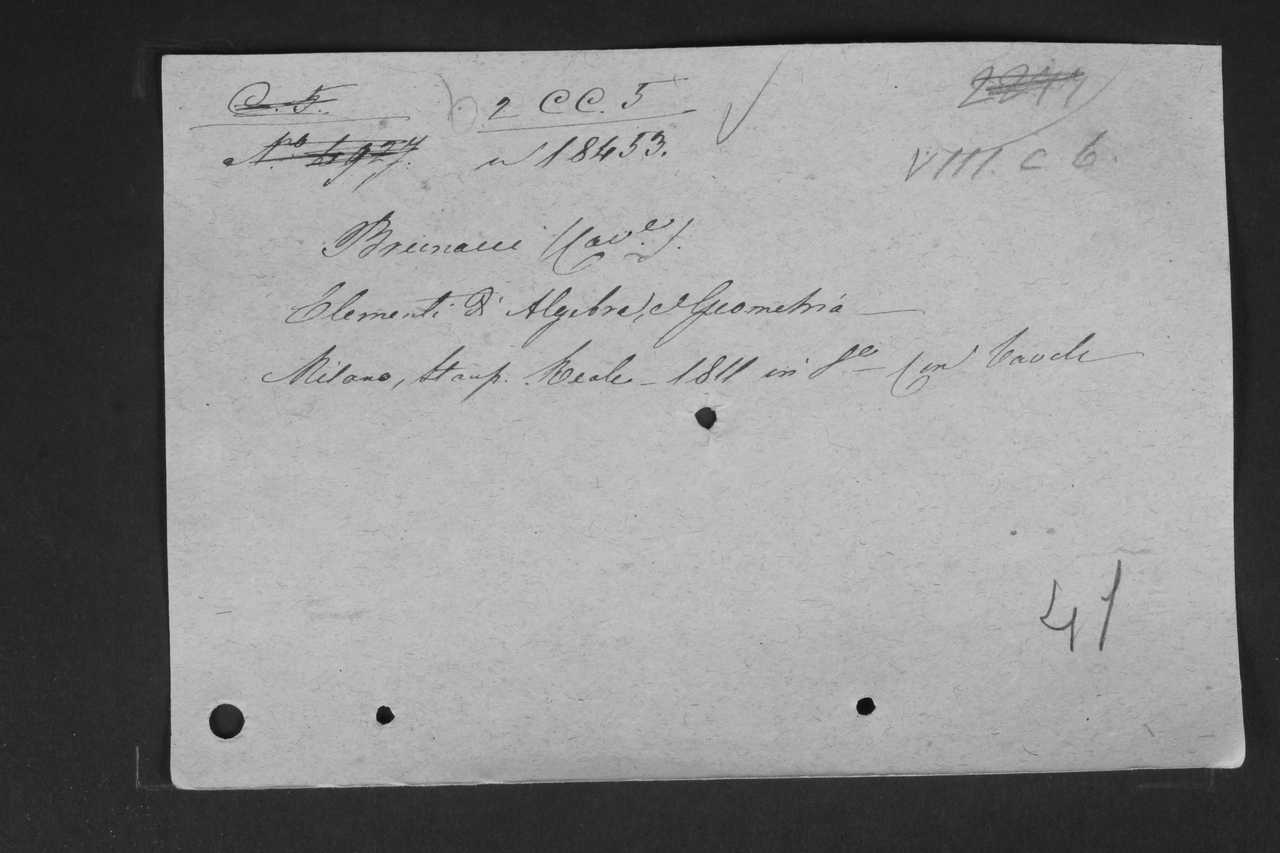 C. F. 2 CC. 5
No. 4937. n 18453.
VIII. C 6.
Brunacci (Cav.e).
Elementi d'Algebra, e Geometria —
Milano, Stamp. Reale — 1811 in 8o con Tavole
41